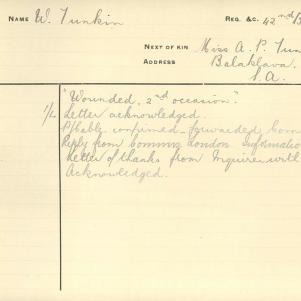 NAME W. Tunkin REG. &C. 42nd/3
NEXT OF KIN Miss A. P. Tun
ADDRESS Balaklava.
S.A.
"Wounded, 2nd occasion".
Letter acknowledged.
P/Cably confirmed, forwarded
Reply from Commrs London informatio
Letter of thanks from Inquirer with
Acknowledged.